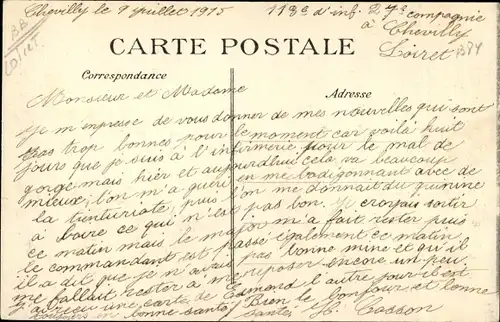 Chevilly le 9 Juillet 1915
113e d'inf. 27e compagnie
à Chevilly
Loiret
CARTE POSTALE
Correspondance
Adresse
Monsieur et Madame
je m'empresse de vous donner de mes nouvelles qui sont
pas trop bonnes pour le moment car voilà huit
jours que je suis à l'infirmerie pour le mal de
gorge mais hier et aujourdhui cela va beaucoup
mieux, l'on m'a guéri en me badigonnant avec de
la tinturiote, puis l'on me donnait du quinine
à boire ce qui n'est pas bon. Je croyais sortir
ce matin mais le major m'a fait rester puis
le commandant est passé également ce matin
il a dit que je n'avais pas bonne mine et qu'il
me fallait rester à me reposer encore un peu.
J'ai reçu une carte de Edmond l'autre jour il est
toujours en bonne santé. Bien le bonjour et bonne
santé, H. Cosson